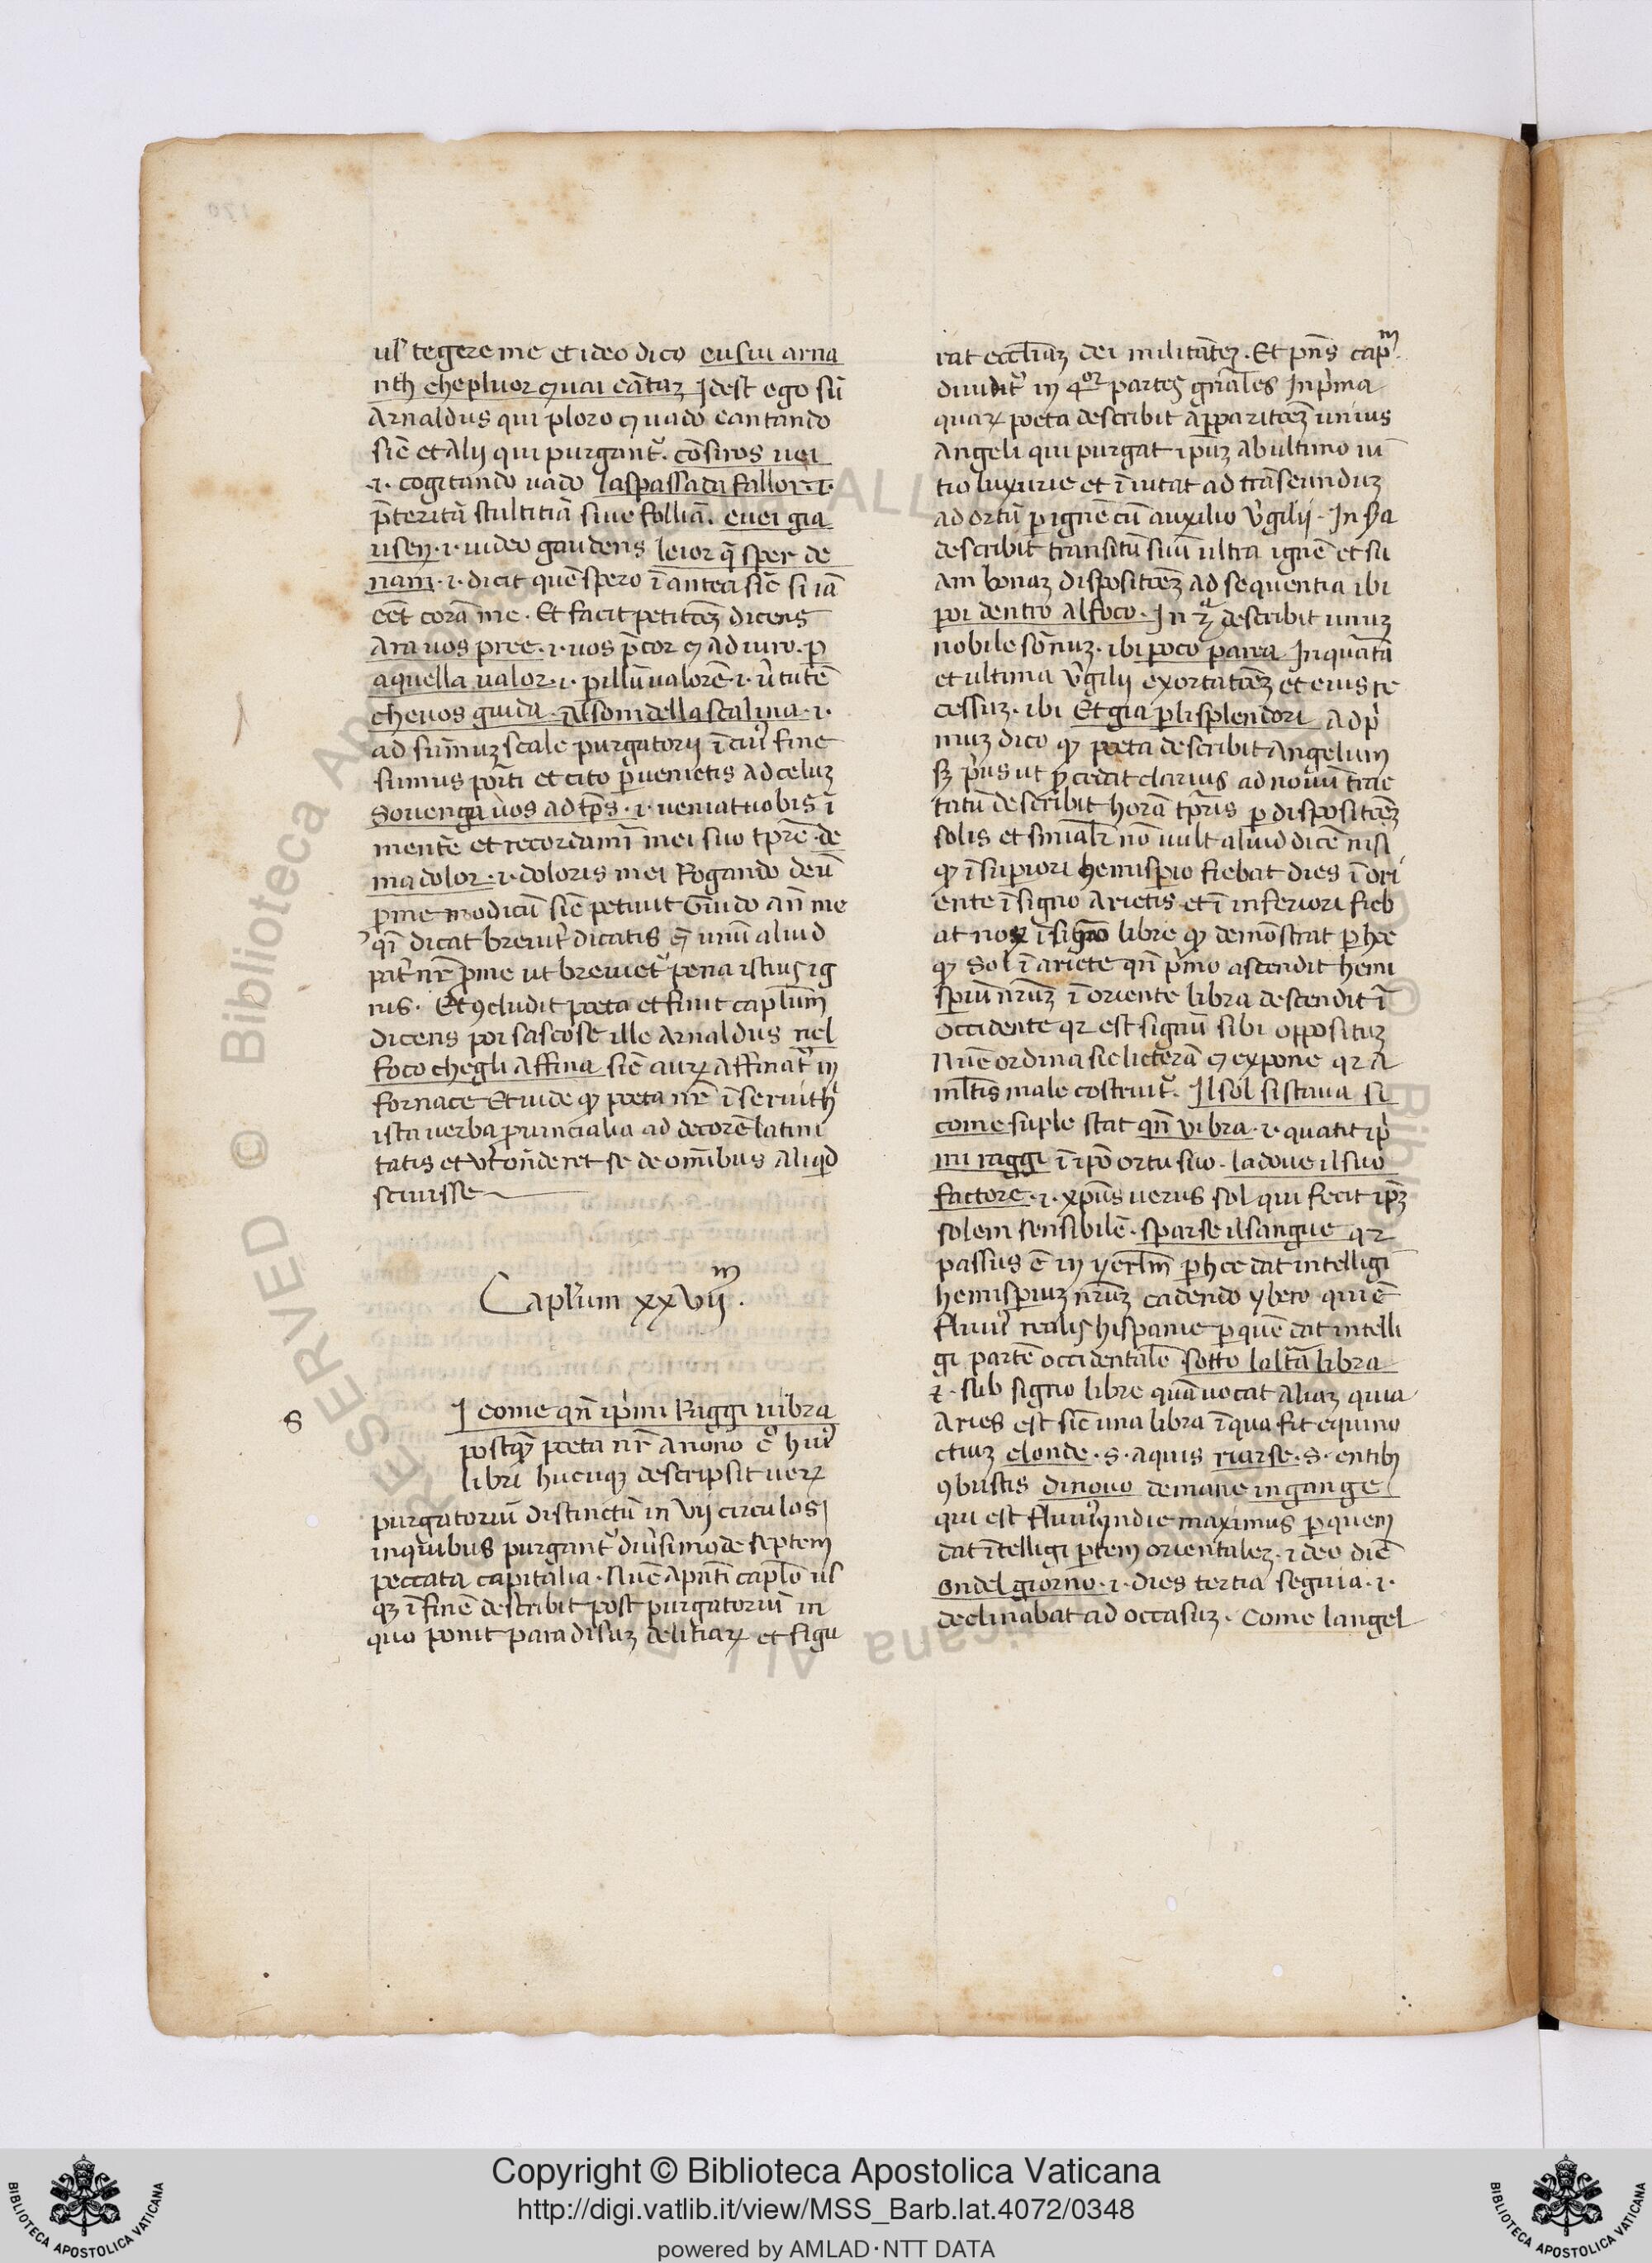 ul' tegere me et ideo dico eu sui arna
uth che pluor ꝯ uai cātaꝫ Idest ego sū
Arnaldus qui ploro ꝯ uado cantando
sic̄ et Alij qui purgant᷑. cōsiros uei
.i. cogitando uado la spassada fallor .i.
p̄teritā stultitiā siue folliā. euei gia
usen .i. uideo gaudens leior q̄ sper de
nam .i. dicit quē spero ī antea sic̄ si iā
eēt corā me. Et facit petitōeꝫ dicens
Ara uos pree .i. uos p̄cor ꝯ adiuro. ꝑ
aquella ualor .i. ꝑ illū ualorē .i. v̓tutē
che uos guida. Al som della scalina .i.
ad sūmuꝫ scale purgatorij ī cui᷒ fine
sumus porti et cito ꝑuenietis ad celuꝫ
Souenga uos ad tp̄s .i. ueniat uobis ī
mente et recordamī mei suo tpr̄e. de
ma dolor .i. doloris mei Rogando deū
ꝑ me modicū sic̄ petiuit Guido an̄ me
dicat breuit̓ dicatis unū aliud
pat̓ nr̄ ꝑ me ut breuiet᷑ pena istius ig
nis. Et ꝯcludit poeta et finit capl̄um
dicens poi sascose ille Arnaldus nel
foco che gli affina sic̄ auꝝ affinat᷑ in
fornace Et uide qꝫ poeta nr̄ īseruit hic
ista uerba ꝓuincialia ad decorē latini
tatis et ut ōnderet se de omnibus aliqd
sciuisse
Caplum xxvijm.
S
I come qn̄ i pⁱmi Raggi uibra
postqꝫ poeta nr̄ a nono c͞o hui᷒
libri hucusqꝫ descripsit ueꝝ
purgatoriū distinctū in vij circulos
in quibus purgant᷑ diu̓simode septem
peccata capitalia. Nūc a pn̄ti caplō us
qꝫ ī finē describit post purgatoriū in
quo ponit paradisuꝫ delitiaꝝ et figu
rat eccl̄iaꝫ dei militāteꝫ. Et pn̄s capm.
diuidit᷑ in 4or partes gn̄ales In pⁱma
quaꝝ poeta describit apparitōeꝫ unius
Angeli qui purgat ip̄uꝫ ab ultimo ui
tio luxurie et īuitat ad trāseunduꝫ
ad ortū ꝑ ignē cū auxilio v̓gilij. In 2a
describit transitū suū ultra ignē et su
am bonaꝫ dispositōeꝫ ad sequentia ibi
poi dentro al foco. In 3a describit unuꝫ
nobile sōnuꝫ. ibi poco parea In quarta
et ultima v̓gilij exortatōeꝫ et eius re
cessuꝫ. ibi Et gia ꝑ li splendori Ad pⁱ
muꝫ dico qꝫ poeta describit Angelum
sꝫ pⁱus ut ꝓcedat clarius ad nouū trac
tatū describit horā tpr̄is ꝑ dispositōeꝫ
solis et snīalr̄ nō uult aliud dicē nisi
qꝫ ī superiori hemisperio fiebat dies ī ori
ente ī signo Arietis et ī inferiori fieb
at nox ī signo libre qꝫ demōstrat ꝑ hoc
qꝫ Sol ī ariete qn̄ pⁱmo ascendit hemi
speriū nr̄uꝫ ī oriente libra descendit ī
occidente qꝛ est signū sibi oppositum
Nūc ordina sic licterā ꝯ expone qꝛ a
ml̄tis male costruit᷑. Il sol si staua si
come suple stat qn̄ vibra .i. quatit i pⁱ
mi raggi ī ip̄o ortu suo. la doue il suo
factore .i. xp̄us uerus sol qui fecit ip̄ꝫ
solem sensibilē. sparse il sangue qꝛ
passus ē in yerl̄m ꝑ hoc dat intelligi
hemisperiuꝫ nr̄uꝫ cadendo ybero qui ē
fluui᷒ realis hispanie ꝑ quē dat intelli
gi partē occidentalē sotto lalta libra
.i. sub signo libre quā uocat altaꝫ quia
Aries est sic̄ una libra ī qua fit equino
ctiuꝫ elonde .s. aquis riarse .s. entibꝫ
ꝯbustis di nouo de mane in gange
qui est fluui᷒ yndie maximus ꝑ quem
dat ītelligi ꝑtem orientaleꝫ. ideo dic̄
ondel giorno .i. dies tertia seguia .i.
declinabat ad occasuꝫ. Come langel
Copyright © Biblioteca Apostolica Vaticana
http://digi.vatlib.it/view/MSS_Barb.lat.4072/0348
powered by AMLAD·NTT DATA